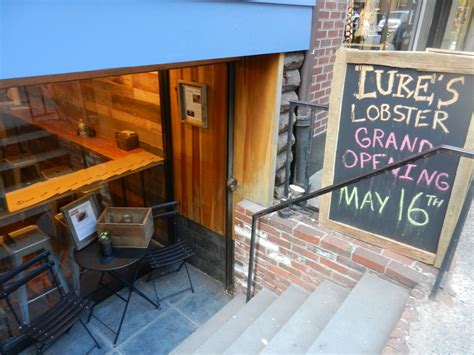 LUKE'S
LOBSTER
GRAND
OPENING
MAY 16TH